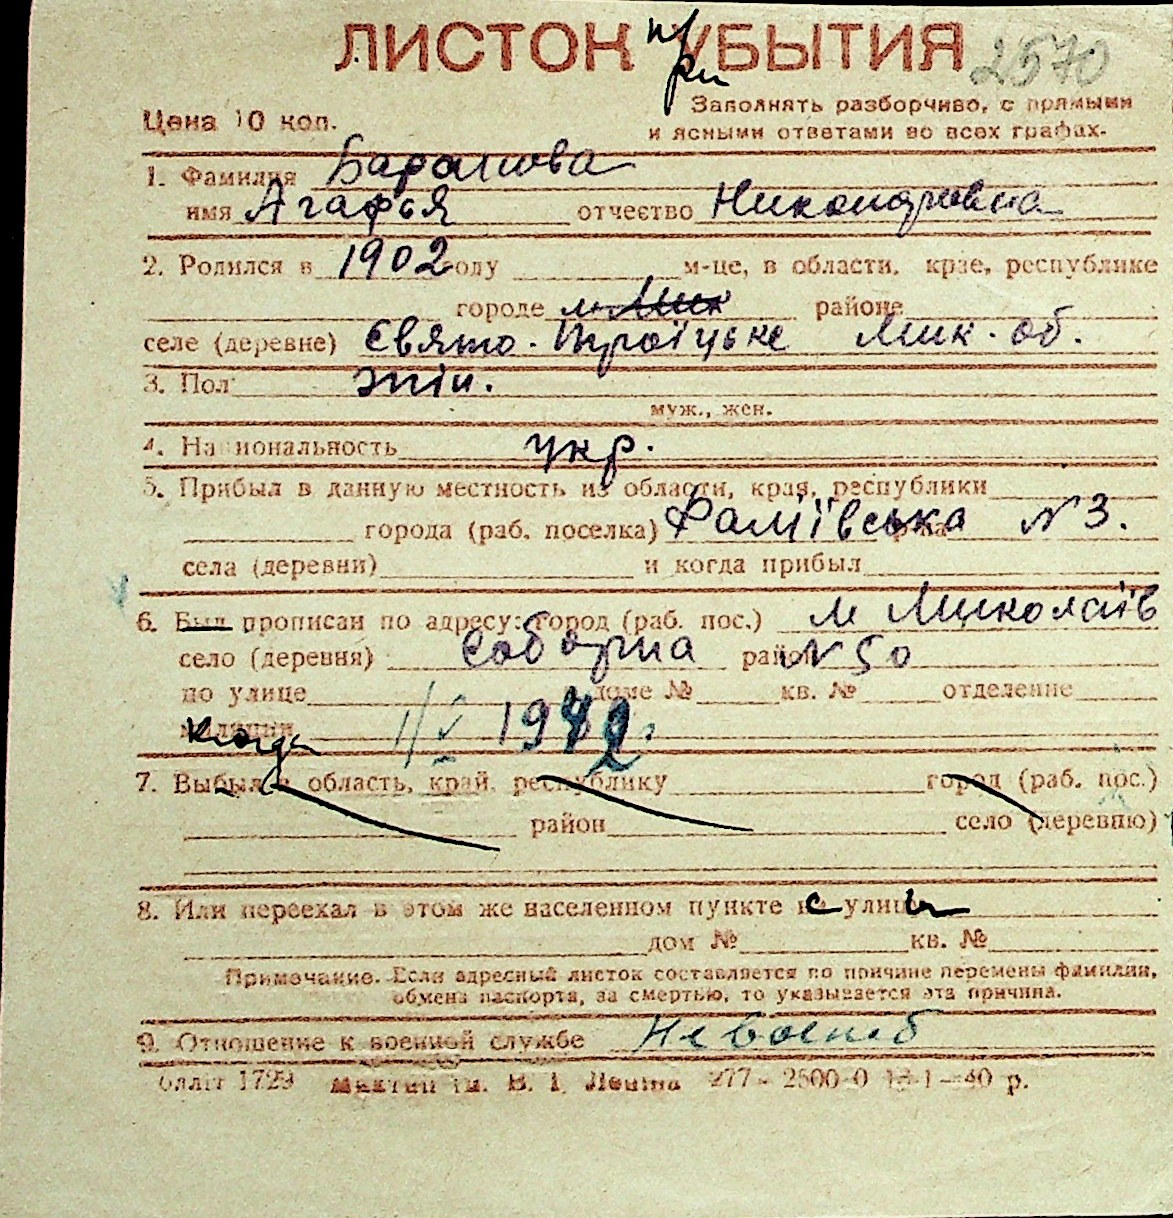 ЛИСТОК при УБЫТИЯ 2570
Цена 10 коп.
Заполнять разборчиво, с прямыми
и ясными ответами во всех графах.
1. Фамилия Баранова
имя Агафья отчество Никондровна
2. Родился в 1902 году м-це, в области, крае, республике
городе м. Мик районе
селе (деревне) Свято-Троїцьке Мик. об.
3. Пол жін.
муж., жен.
4. Национальность укр.
5. Прибыл в данную местность из области, края, республики
города (раб. поселка) Фаліївська N 3.
села (деревни) и когда прибыл
6. Был прописан по адресу: город (раб. пос.) м Миколаїв
село (деревня) Соборна район N 50
по улице доме № кв. № отделение
милиции когда 1/V 1942 г.
7. Выбыл в область, край, республику город (раб. пос.)
район село (деревню)
8. Или переехал в этом же населенном пункте с улицы
дом № кв. №
Примечание. Если адресный листок составляется по причине перемены фамилии,
обмена паспорта, за смертью, то указывается эта причина.
9. Отношение к военной службе Невоенноб
1729 ім. В. І. Леніна 277 - 2500-0 13-1-40 р.